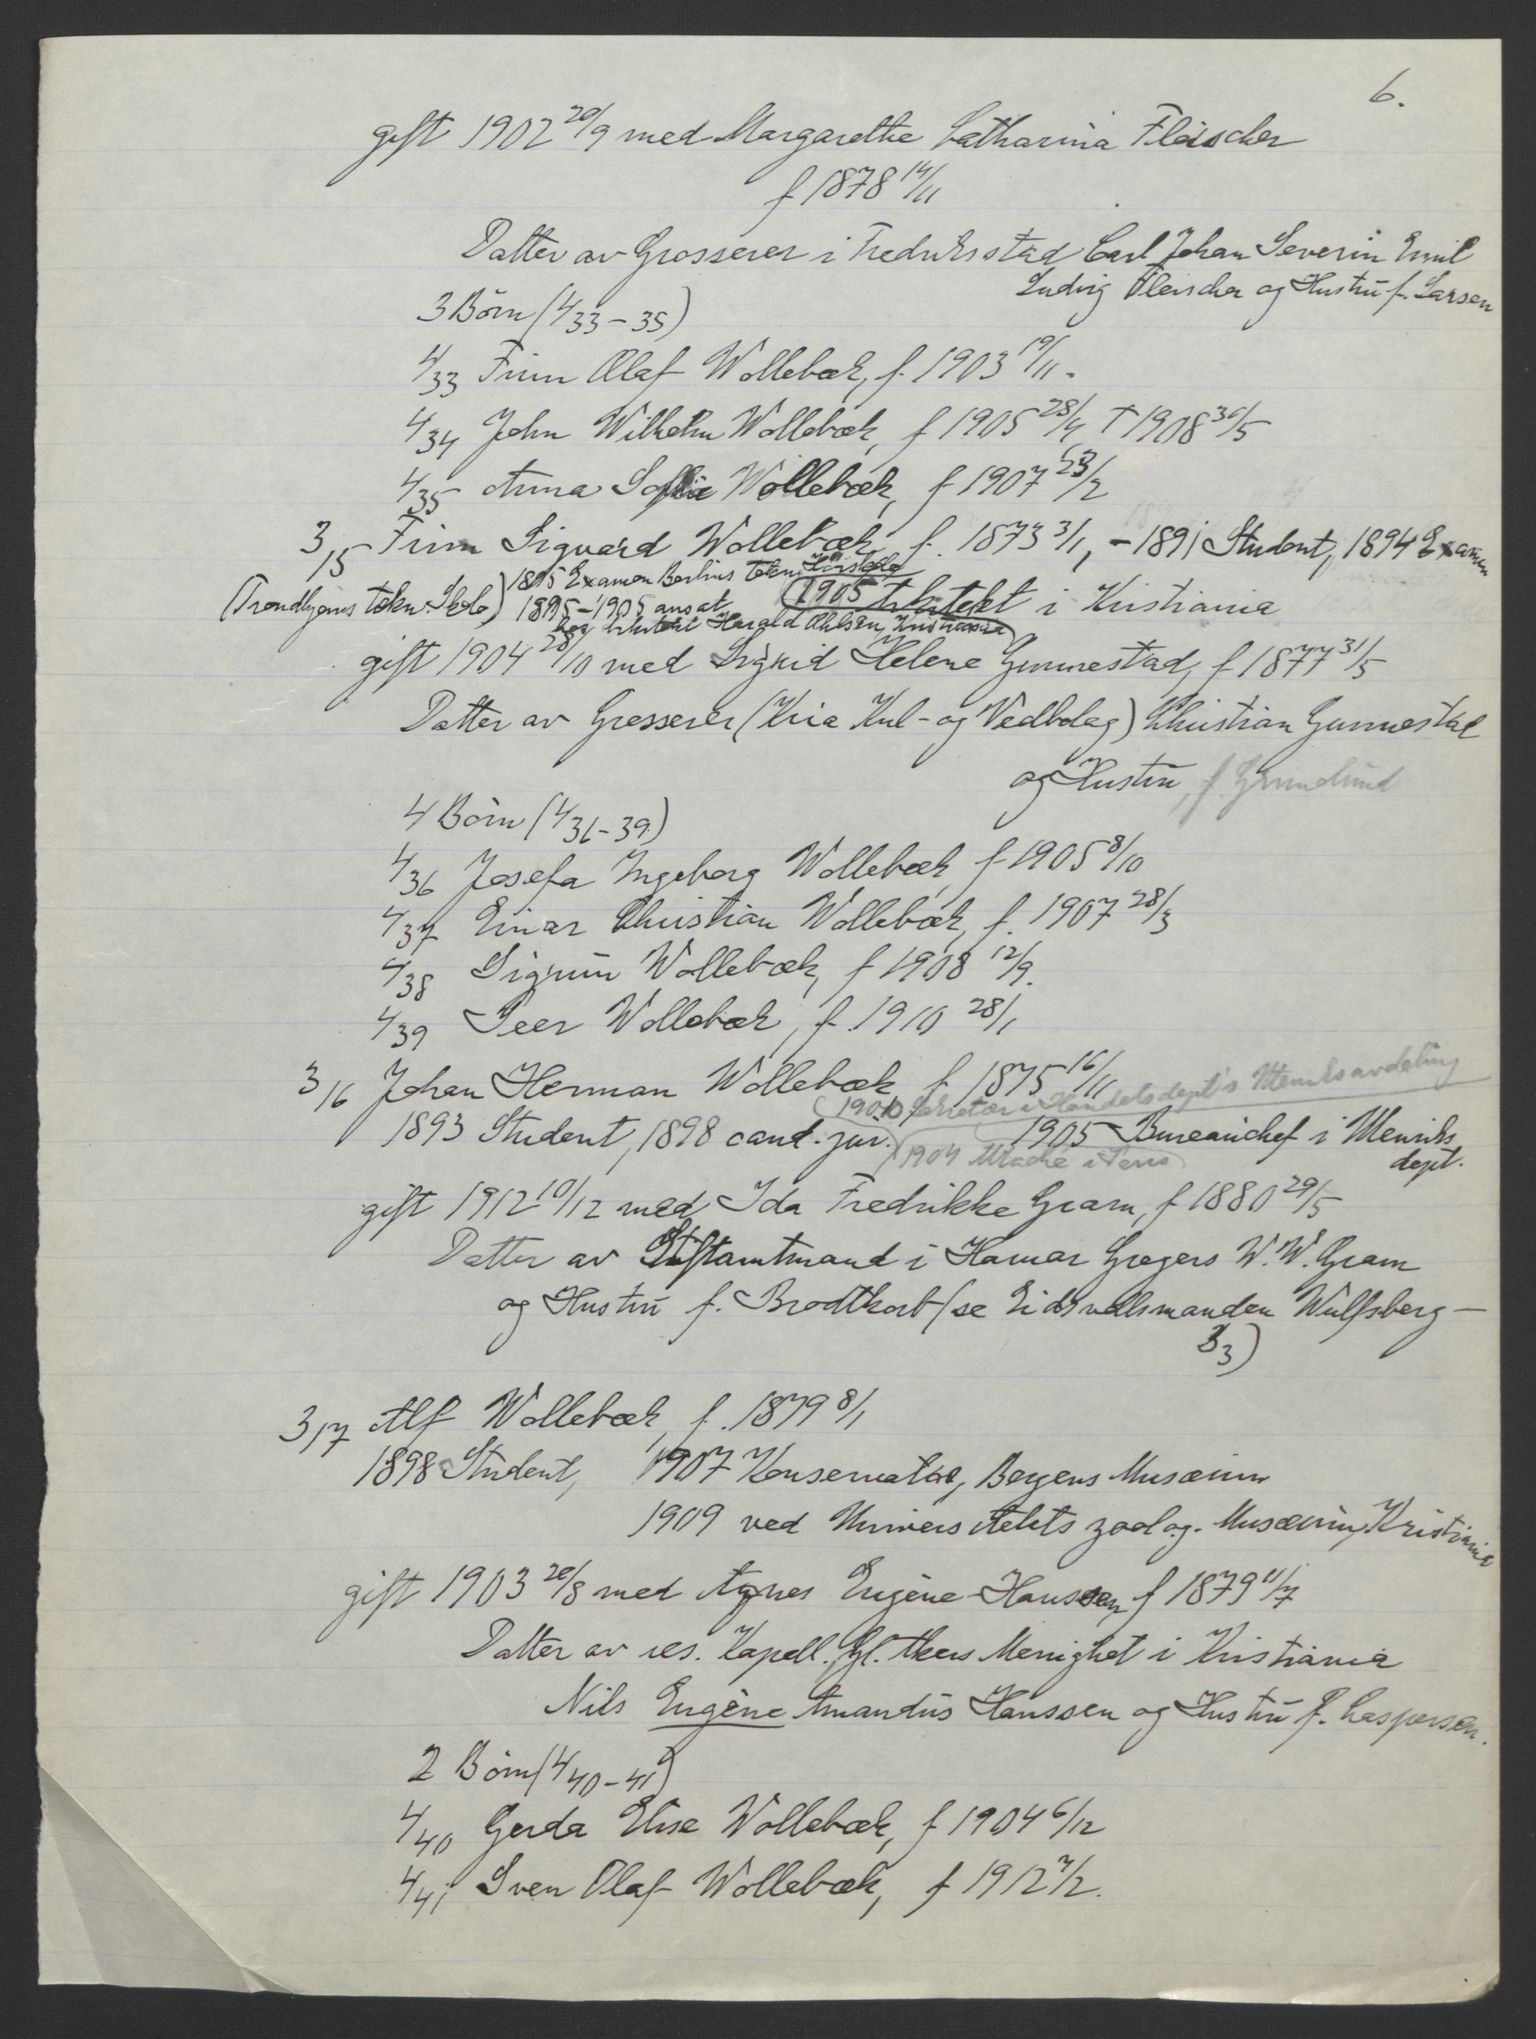 6.
gift 1902 20/9 med Margarethe Catharina Fleischer
f 1878 14/11
Datter av Grosserer i Fredriksstad Carl Johan Severin Emil
Ludvig Fleischer og Hustru f. Larsen
3 Børn (4/33-35)
4/33 Finn Olaf Wollebæk, f. 1903 19/11.
4/34 John Wilhelm Wollebæk, f 1905 28/4, † 1908 30/5
4/35 Anna Sofie Wollebæk, f 1907 23/2
3/15 Finn Sigvard Wollebæk f. 1873 3/1, - 1891 Student, 1894 Examen
(Trondhjems tekn. Skole) 1895 Examen Berlins tekn. Høiskole
1895-1905 ansat (1905 Arkitekt i Kristiania
hos Arkitekt Harald Ohlsen, Kristiania)
gift 1904 28/10 med Sigrid Helene Gunnestad, f 1877 31/5
Datter av Grosserer (Kria Kul- og Vedbolag) Christian Gunnestad
og Hustru, f. Grundlund
4 Børn (4/36-39)
4/36 Josefa Ingeborg Wollebæk f 1905 8/10
4/37 Einar Christian Wollebæk, f. 1907 28/3
4/38 Sigrun Wollebæk, f 1908 12/9.
4/39 Peer Wollebæk, f. 1910 28/1
3/16 Johan Herman Wollebæk f 1875 16/11
(1900 Sekretær i Handelsdept's Utenriksavdeling
1893 Student, 1898 cand. jur. 1905 Bureauchef i Utenriks
dept.
(1904 Attaché i Paris)
gift 1912 10/12 med Ida Fredrikke Gram, f 1880 29/5
Datter av Stiftamtmand i Hamar Gregers W. W. Gram
og Hustru f. Brodtkorb (se Eidsvollsmanden Wulfsberg -
3/3)
3/17 Alf Wollebæk, f. 1879 8/1
1898 Student, 1907 Konservator, Bergens Musæum
1909 ved Universitetets zoolog. Musæum, Kristiania
gift 1903 20/8 med Agnes Eugène Hanssen f 1879 11/7
Datter av res. Kapell. Gl. Akers Menighet i Kristiania
Nils Eugène Amandus Hanssen og Hustru f. Caspersen.
2 Børn (4/40-41)
4/40 Gerda Elise Wollebæk, f 1904 6/12
4/41 Sven Olaf Wollebæk, f 1912 7/2.